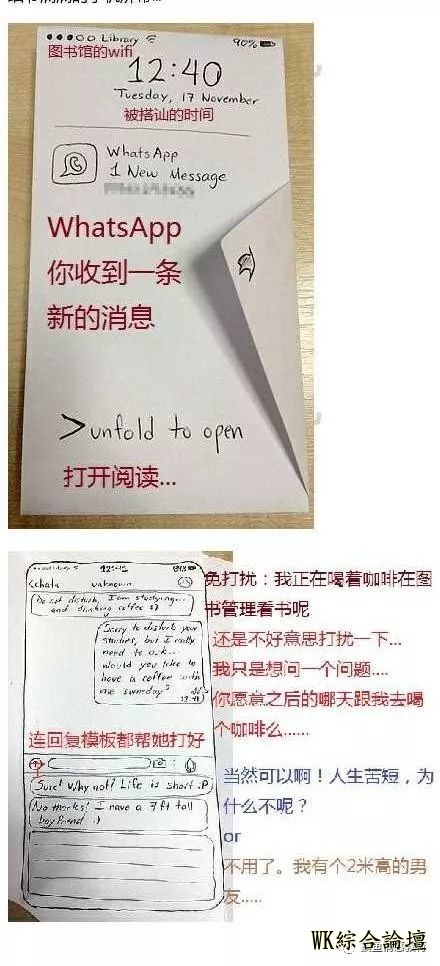 ●●●○○ Library
90%
图书馆的wifi
12:40
Tuesday, 17 November
被搭讪的时间
WhatsApp
1 New Message
WhatsApp
你收到一条
新的消息
>unfold to open
打开阅读...
12:41
<chats unknown
Do not disturb, I am studying...
and drinking coffee :)
Sorry to disturb your
studies, but I really
need to ask...
would you like to
have a coffee with
me someday?
12:41
免打扰：我正在喝着咖啡在图
书管理看书呢
还是不好意思打扰一下...
我只是想问一个问题....
你愿意之后的哪天跟我去喝
个咖啡么......
连回复模板都帮她打好
Sure! Why not? Life is short :P
No thanks! I have a 7ft tall
boyfriend :)
当然可以啊！人生苦短，为
什么不呢？
or
不用了。我有个2米高的男
友.....
WK綜合論壇